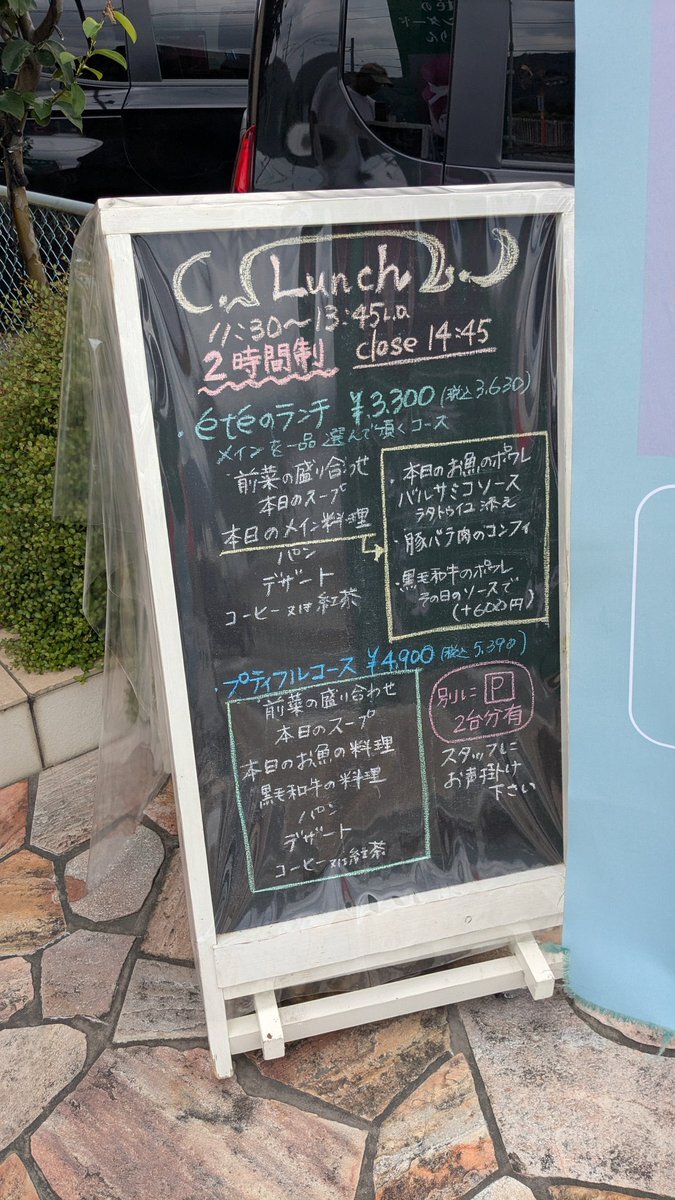 Lunch
11:30〜13:45 L.O.
2時間制 close 14:45
・étéのランチ ¥3.300(税込3,630)
メインを一品選んで頂くコース
前菜の盛り合わせ
本日のスープ
本日のメイン料理
パン
デザート
コーヒー又は紅茶
・本日のお魚のポワレ
バルサミコソース
ラタトゥイユ添え
・豚バラ肉のコンフィ
・黒毛和牛のポワレ
その日のソースで
(+600円)
・プティフルコース ¥4,900(税込5,390)
前菜の盛り合わせ
本日のスープ
本日のお魚の料理
黒毛和牛の料理
パン
デザート
コーヒー又は紅茶
別に P
2台分有
スタッフに
お声掛け
下さい